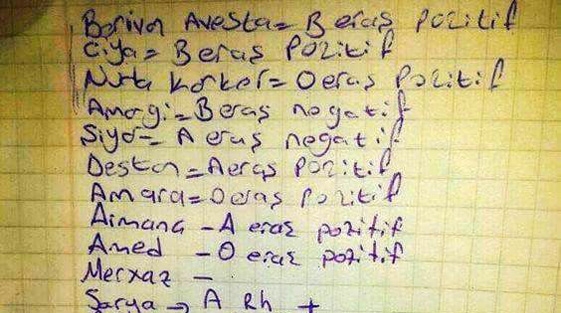 Berivan Avesta= B eraş pozitif
Ciya= B eraş POZitif
Nuta Korkor= O eraş Pozitif
Amargi= B eraş negatif
Siya= A eraş negatif
Destan= A eraş pozitif
Amara= O eraş Pozitif
Aimana - A eraş pozitif
Amed - O eraş pozitif
Merxaz -
Sarya → A Rh +